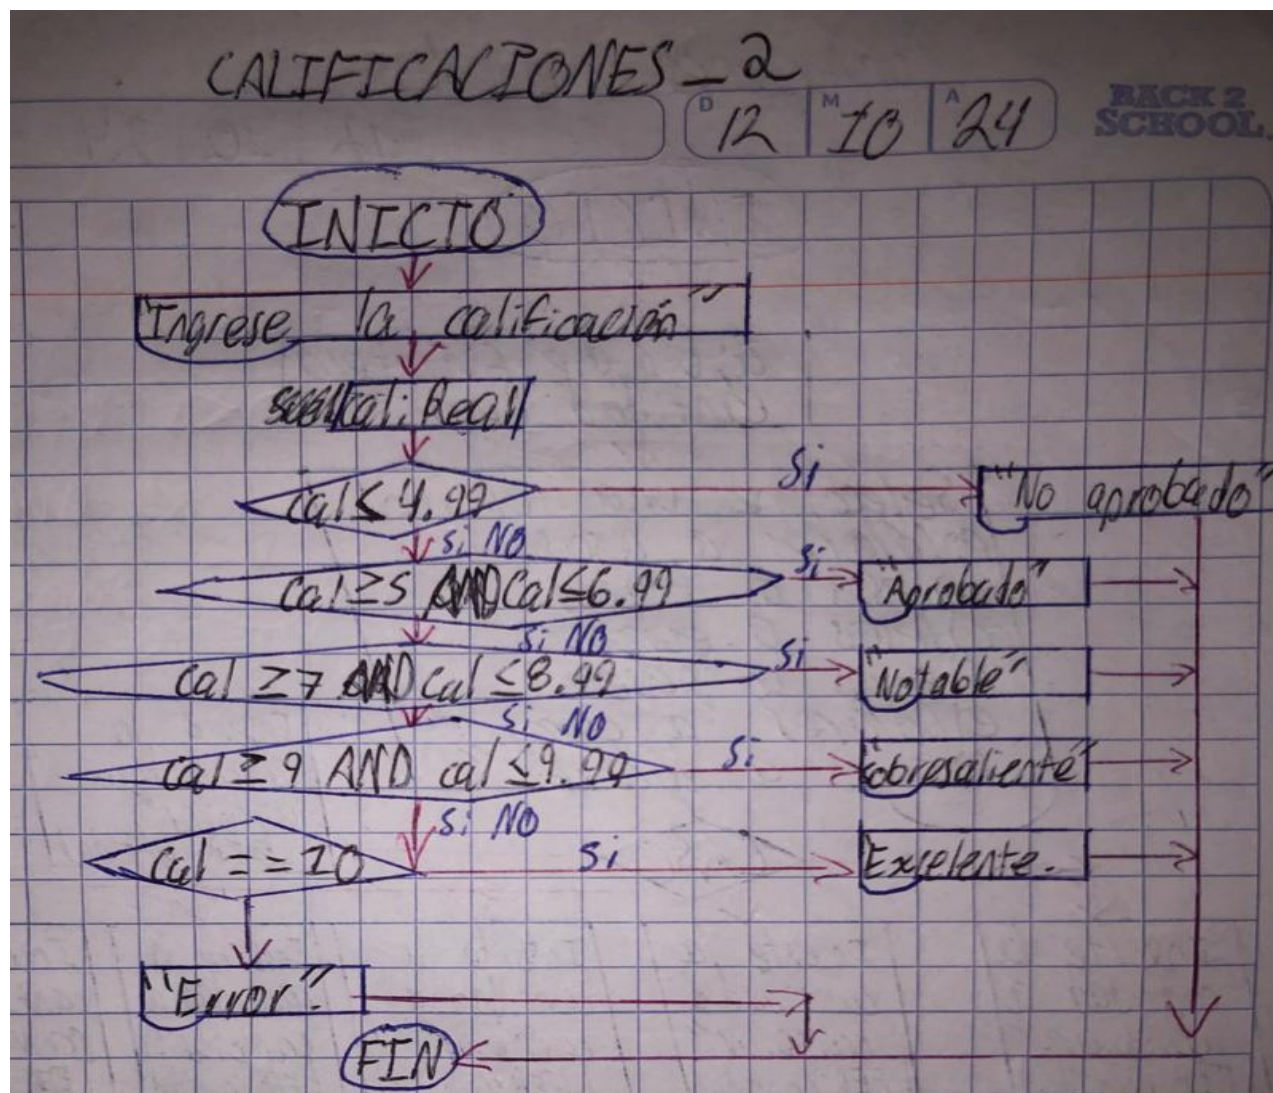 CALIFICACIONES_2
D 12 M 10 A 24
BACK 2
SCHOOL
INICIO
"Ingrese la calificación"
cal: Real
cal ≤ 4.99
Si
"No aprobado"
Si NO
Cal ≥ 5 AND Cal ≤ 6.99
Si
"Aprobado"
Si NO
Cal ≥ 7 AND Cal ≤ 8.99
Si
"Notable"
Si NO
Cal ≥ 9 AND cal ≤ 9.99
Si
"sobresaliente"
Si NO
Cal == 10
Si
Excelente.
"Error".
FIN